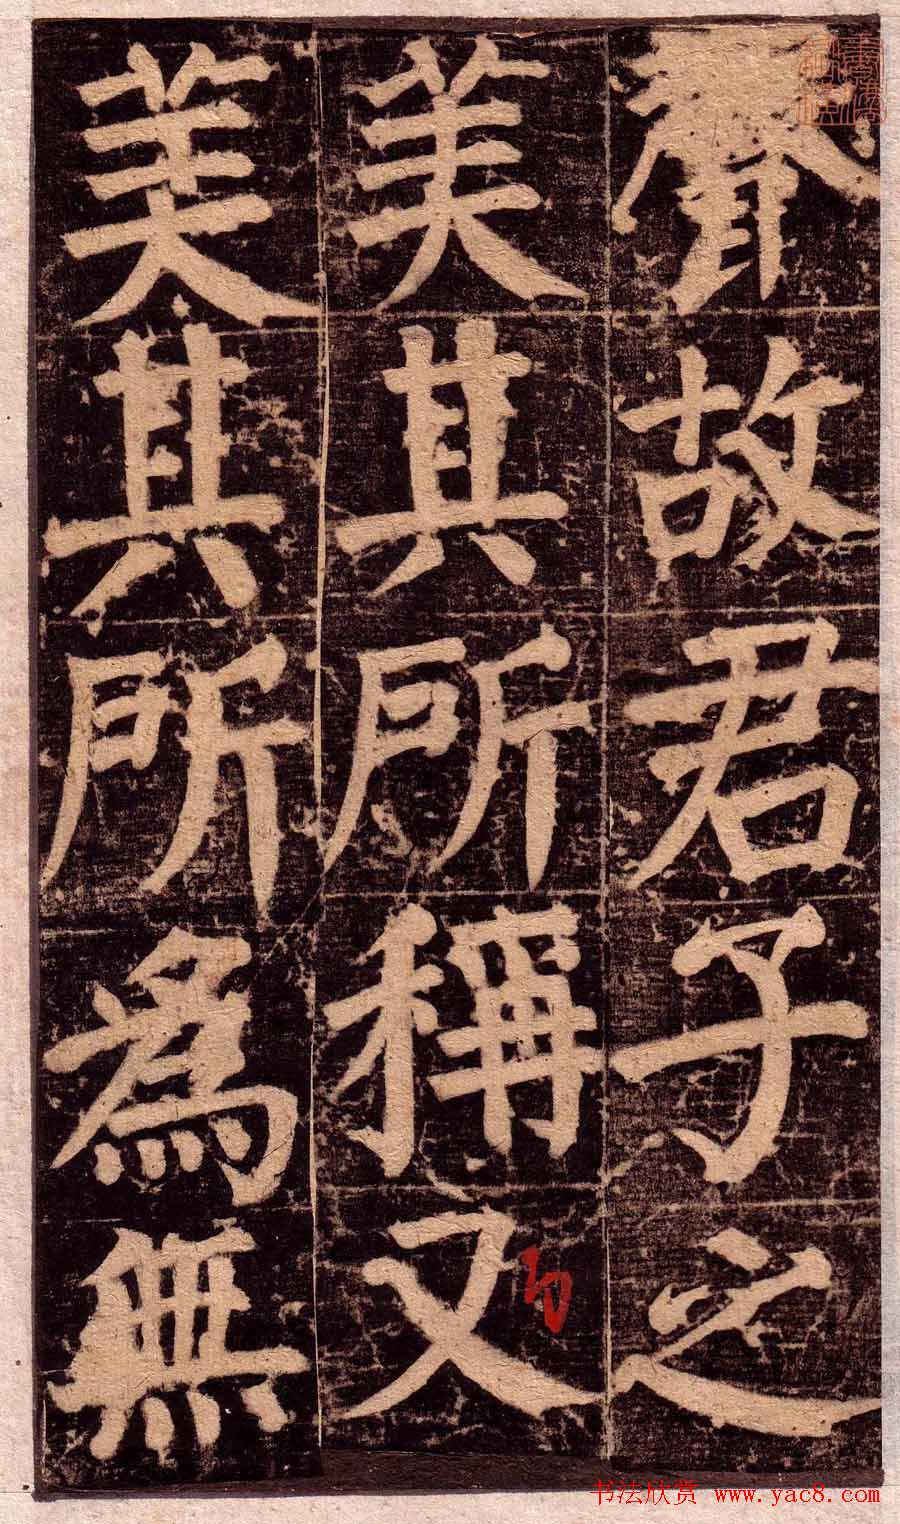 故君子之
美其所稱又
美其所爲無
书法欣赏 www.yac8.com